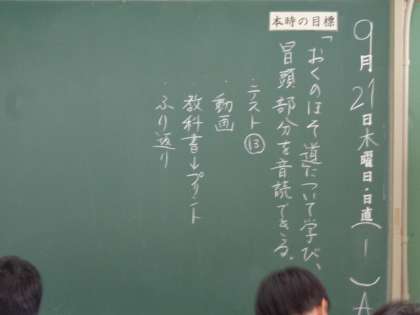 9月21日木曜日・日直(1)A
本時の目標
「おくのほそ道」について学び、
冒頭部分を音読できる。
・テスト⑬
・動画
教科書→プリント
・ふり返り